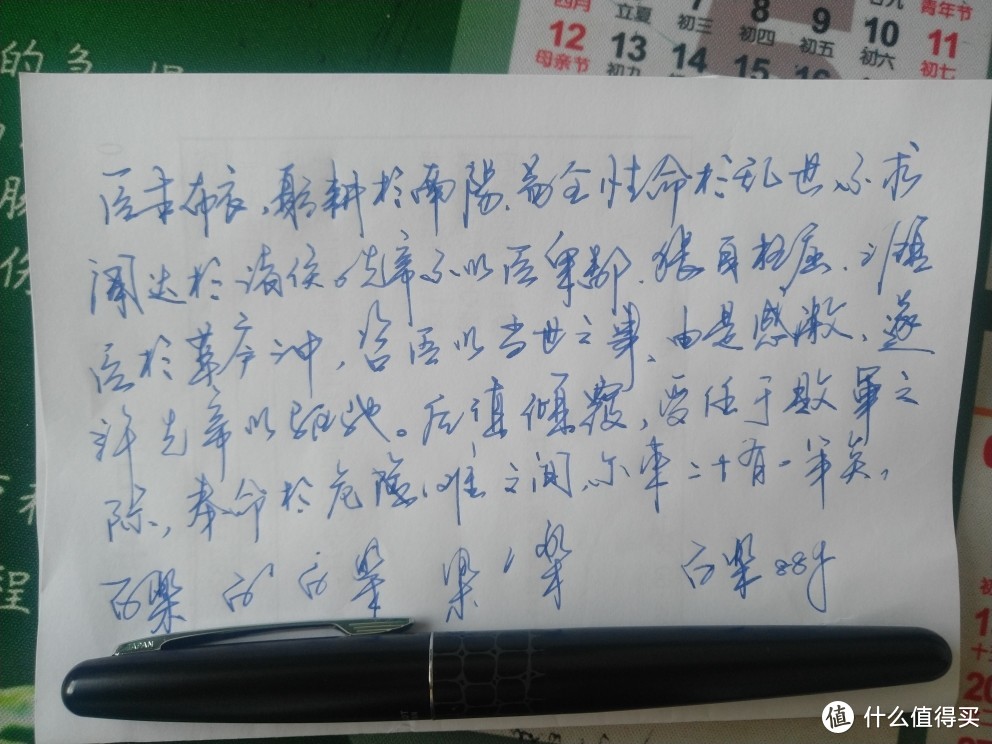 四月 7 8 9 青年节
立夏 初三 初四 初五 10 11
12 13 14 15 16 初六 初七
母亲节 初九
的
腸
份
程
臣本布衣,躬耕於南陽,苟全性命於乱世,不求
闻达於诸侯。先帝不以臣卑鄙,猥自枉屈,三顾
臣於草庐之中,咨臣以当世之事,由是感激,遂
许先帝以驱驰。后值倾覆,受任于败军之
际,奉命於危难之间,尔来二十有一年矣,
百乐 百 百乐 乐 乐 百乐 88年
JAPAN
20
值 什么值得买